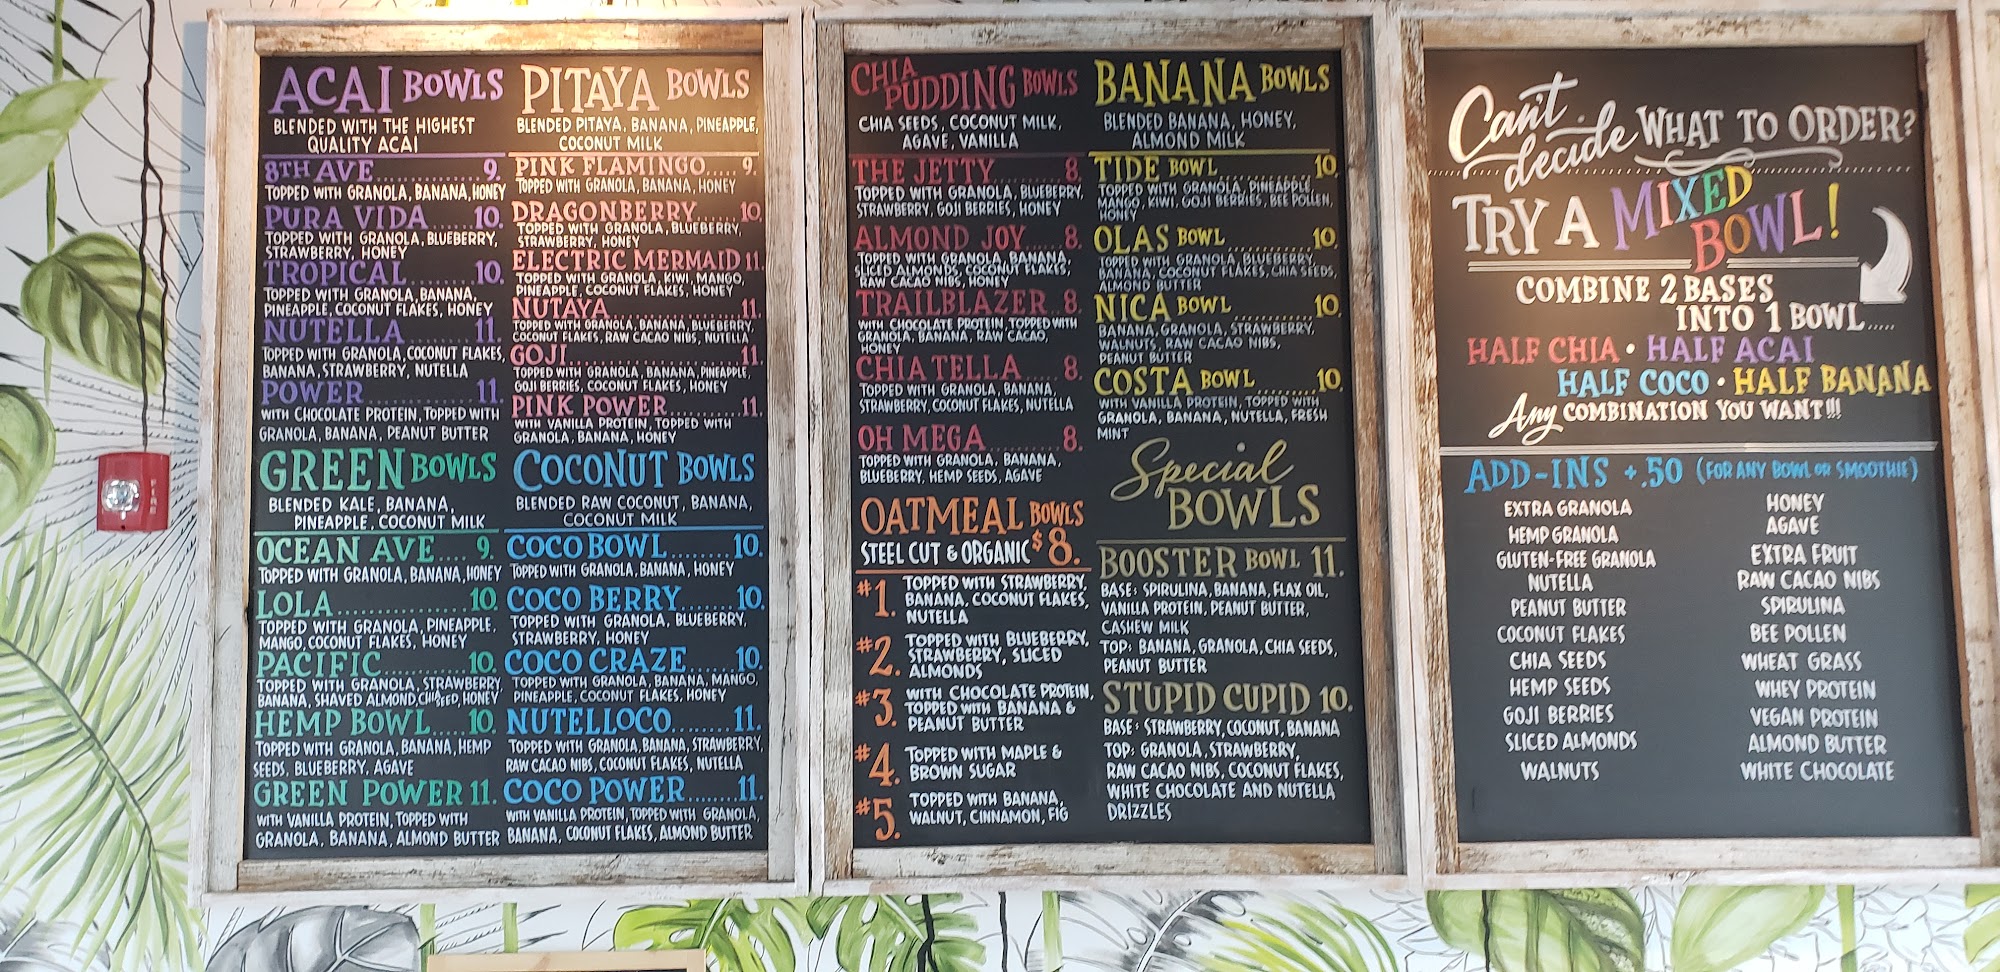 ACAI BOWLS
BLENDED WITH THE HIGHEST
QUALITY ACAI
8TH AVE..............9.
TOPPED WITH GRANOLA, BANANA, HONEY
PURA VIDA......10.
TOPPED WITH GRANOLA, BLUEBERRY,
STRAWBERRY, HONEY
TROPICAL.........10.
TOPPED WITH GRANOLA, BANANA,
PINEAPPLE, COCONUT FLAKES, HONEY
NUTELLA..........11.
TOPPED WITH GRANOLA, COCONUT FLAKES,
BANANA, STRAWBERRY, NUTELLA
POWER..............11.
WITH CHOCOLATE PROTEIN, TOPPED WITH
GRANOLA, BANANA, PEANUT BUTTER
GREEN BOWLS
BLENDED KALE, BANANA,
PINEAPPLE, COCONUT MILK
OCEAN AVE.... 9.
TOPPED WITH GRANOLA, BANANA, HONEY
LOLA................10.
TOPPED WITH GRANOLA, PINEAPPLE,
MANGO, COCONUT FLAKES, HONEY
PACIFIC...........10.
TOPPED WITH GRANOLA, STRAWBERRY
BANANA, SHAVED ALMOND, CHIA SEED, HONEY
HEMP BOWL.....10.
TOPPED WITH GRANOLA, BANANA, HEMP
SEEDS, BLUEBERRY, AGAVE
GREEN POWER 11.
WITH VANILLA PROTEIN, TOPPED WITH
GRANOLA, BANANA, ALMOND BUTTER
PITAYA BOWLS
BLENDED PITAYA, BANANA, PINEAPPLE,
COCONUT MILK
PINK FLAMINGO..... 9.
TOPPED WITH GRANOLA, BANANA, HONEY
DRAGONBERRY......10.
TOPPED WITH GRANOLA, BLUEBERRY,
STRAWBERRY, HONEY
ELECTRIC MERMAID 11.
TOPPED WITH GRANOLA, KIWI, MANGO,
PINEAPPLE, COCONUT FLAKES, HONEY
NUTAYA..................11.
TOPPED WITH GRANOLA, BANANA, BLUEBERRY,
COCONUT FLAKES, RAW CACAO NIBS, NUTELLA
GOJI........................11.
TOPPED WITH GRANOLA, BANANA, PINEAPPLE,
GOJI BERRIES, COCONUT FLAKES, HONEY
PINK POWER..........11.
WITH VANILLA PROTEIN, TOPPED WITH
GRANOLA, BANANA, HONEY
COCONUT BOWLS
BLENDED RAW COCONUT, BANANA,
COCONUT MILK
COCO BOWL........10.
TOPPED WITH GRANOLA, BANANA, HONEY
COCO BERRY.......10.
TOPPED WITH GRANOLA, BLUEBERRY,
STRAWBERRY, HONEY
COCO CRAZE......10.
TOPPED WITH GRANOLA, BANANA, MANGO,
PINEAPPLE, COCONUT FLAKES, HONEY
NUTELLOCO........11.
TOPPED WITH GRANOLA, BANANA, STRAWBERRY,
RAW CACAO NIBS, COCONUT FLAKES, NUTELLA
COCO POWER........11.
WITH VANILLA PROTEIN, TOPPED WITH GRANOLA,
BANANA, COCONUT FLAKES, ALMOND BUTTER
CHIA
PUDDING BOWLS
CHIA SEEDS, COCONUT MILK,
AGAVE, VANILLA
THE JETTY.......... 8.
TOPPED WITH GRANOLA, BLUEBERRY,
STRAWBERRY, GOJI BERRIES, HONEY
ALMOND JOY..... 8.
TOPPED WITH GRANOLA, BANANA,
SLICED ALMONDS, COCONUT FLAKES,
RAW CACAO NIBS, HONEY
TRAILBLAZER.. 8.
WITH CHOCOLATE PROTEIN, TOPPED WITH
GRANOLA, BANANA, RAW CACAO,
HONEY
CHIA TELLA...... 8.
TOPPED WITH GRANOLA, BANANA,
STRAWBERRY, COCONUT FLAKES, NUTELLA
OH MEGA........... 8.
TOPPED WITH GRANOLA, BANANA,
BLUEBERRY, HEMP SEEDS, AGAVE
OATMEAL BOWLS
STEEL CUT & ORGANIC $8.
#1. TOPPED WITH STRAWBERRY,
BANANA, COCONUT FLAKES,
NUTELLA
#2. TOPPED WITH BLUEBERRY,
STRAWBERRY, SLICED
ALMONDS
#3. WITH CHOCOLATE PROTEIN,
TOPPED WITH BANANA &
PEANUT BUTTER
#4. TOPPED WITH MAPLE &
BROWN SUGAR
#5. TOPPED WITH BANANA,
WALNUT, CINNAMON, FIG
BANANA BOWLS
BLENDED BANANA, HONEY,
ALMOND MILK
TIDE BOWL..............10.
TOPPED WITH GRANOLA, PINEAPPLE,
MANGO, KIWI, GOJI BERRIES, BEE POLLEN,
HONEY
OLAS BOWL............10.
TOPPED WITH GRANOLA, BLUEBERRY,
BANANA, COCONUT FLAKES, CHIA SEEDS,
ALMOND BUTTER
NICA BOWL............10.
BANANA, GRANOLA, STRAWBERRY,
WALNUTS, RAW CACAO NIBS,
PEANUT BUTTER
COSTA BOWL.........10.
WITH VANILLA PROTEIN, TOPPED WITH
GRANOLA, BANANA, NUTELLA, FRESH
MINT
Special
BOWLS
BOOSTER BOWL 11.
BASE: SPIRULINA, BANANA, FLAX OIL,
VANILLA PROTEIN, PEANUT BUTTER,
CASHEW MILK
TOP: BANANA, GRANOLA, CHIA SEEDS,
PEANUT BUTTER
STUPID CUPID 10.
BASE: STRAWBERRY, COCONUT, BANANA
TOP: GRANOLA, STRAWBERRY,
RAW CACAO NIBS, COCONUT FLAKES,
WHITE CHOCOLATE AND NUTELLA
DRIZZLES
Can't
decide WHAT TO ORDER?
TRY A MIXED
BOWL!
COMBINE 2 BASES
INTO 1 BOWL.....
HALF CHIA • HALF ACAI
HALF COCO • HALF BANANA
Any COMBINATION YOU WANT!!!
ADD-INS +.50 (FOR ANY BOWL OR SMOOTHIE)
EXTRA GRANOLA
HEMP GRANOLA
GLUTEN-FREE GRANOLA
NUTELLA
PEANUT BUTTER
COCONUT FLAKES
CHIA SEEDS
HEMP SEEDS
GOJI BERRIES
SLICED ALMONDS
WALNUTS
HONEY
AGAVE
EXTRA FRUIT
RAW CACAO NIBS
SPIRULINA
BEE POLLEN
WHEAT GRASS
WHEY PROTEIN
VEGAN PROTEIN
ALMOND BUTTER
WHITE CHOCOLATE
FIRE